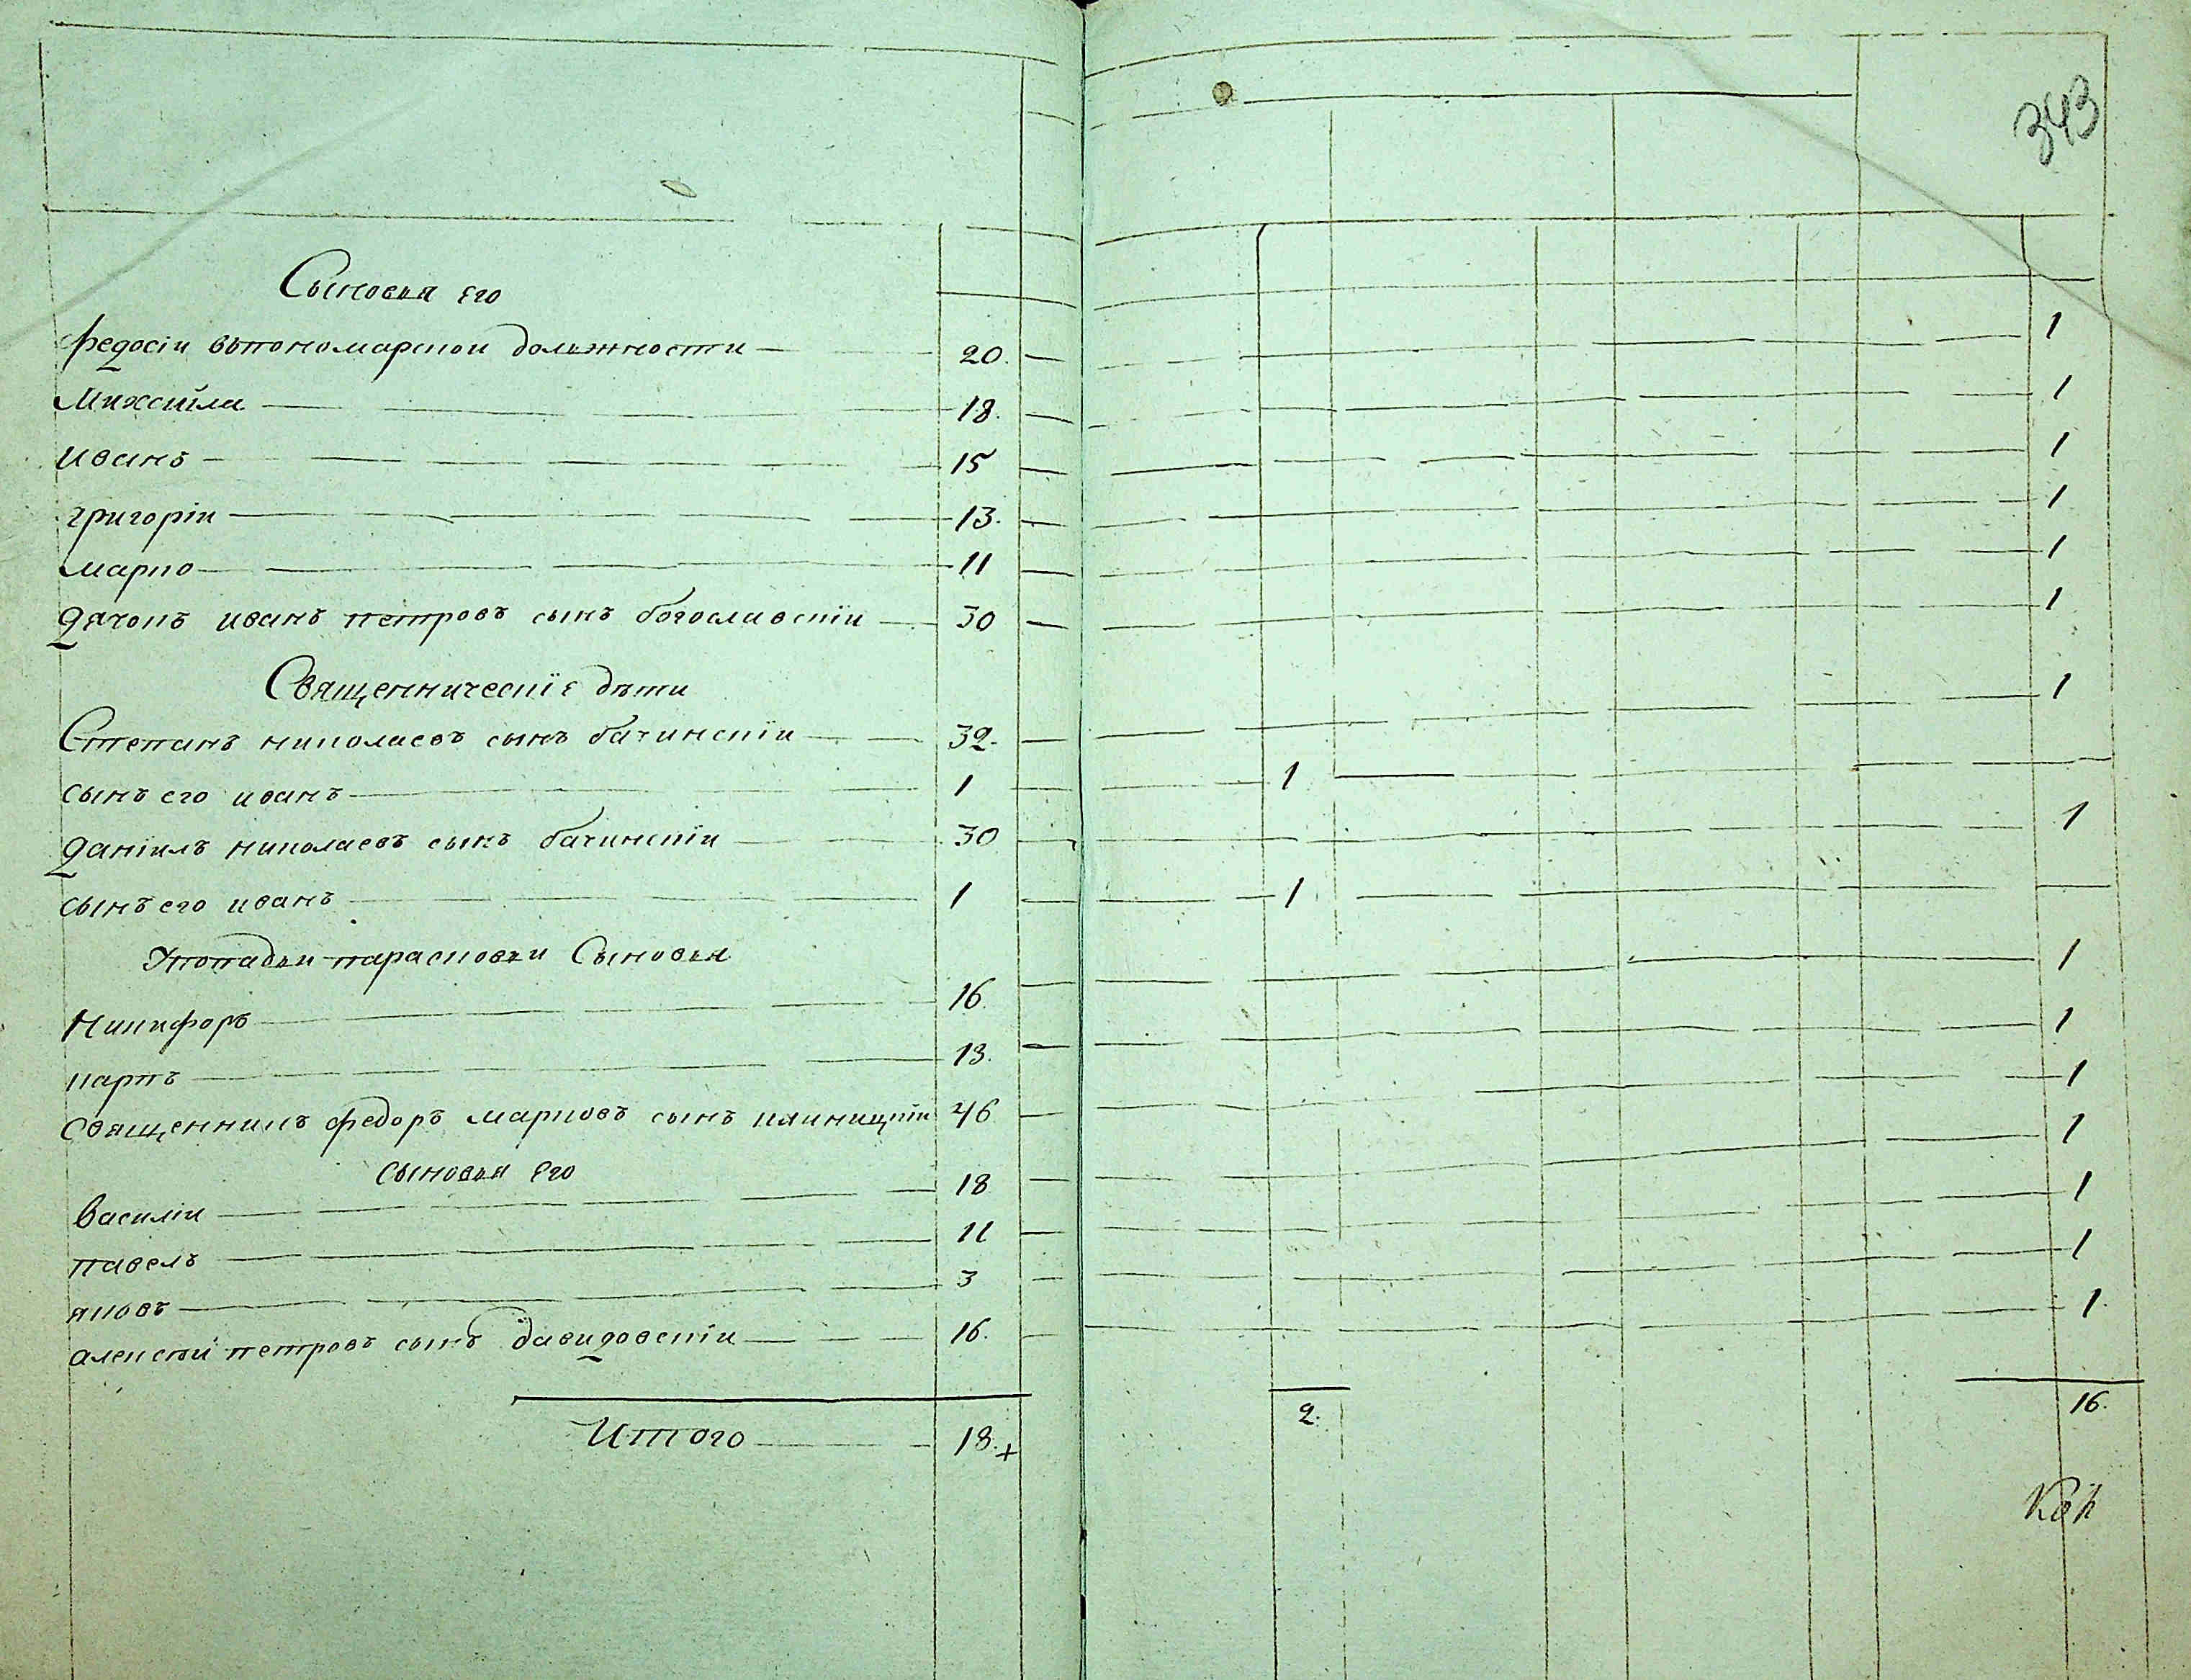 343
Сыновья Его
Федосіи въпономарской должности 20. 1
Михайла 18. 1
Иванъ 15 1
григоріи 13. 1
марко 11 1
Дячокъ иванъ петровъ сынъ богославскіи 30 1
Священническіе дѣти
Степанъ николаевъ сынъ бачинскіи 32. 1
сынъ его иванъ 1 1
Даніилъ николаевъ сынъ бачинскіи 30 1
сынъ его иванъ 1 1
Упопадьи парасковьи Сыновья
Никифоръ 16. 1
карпъ 13. 1
священникъ федоръ марковъ сынъ клиницкіи 46 1
сыновья Его
Василіи 18 1
павелъ 11 1
яковъ 3 1
алексѣй петровъ сынъ давидовскіи 16. 1.
Итого 18.+ 2. 16.